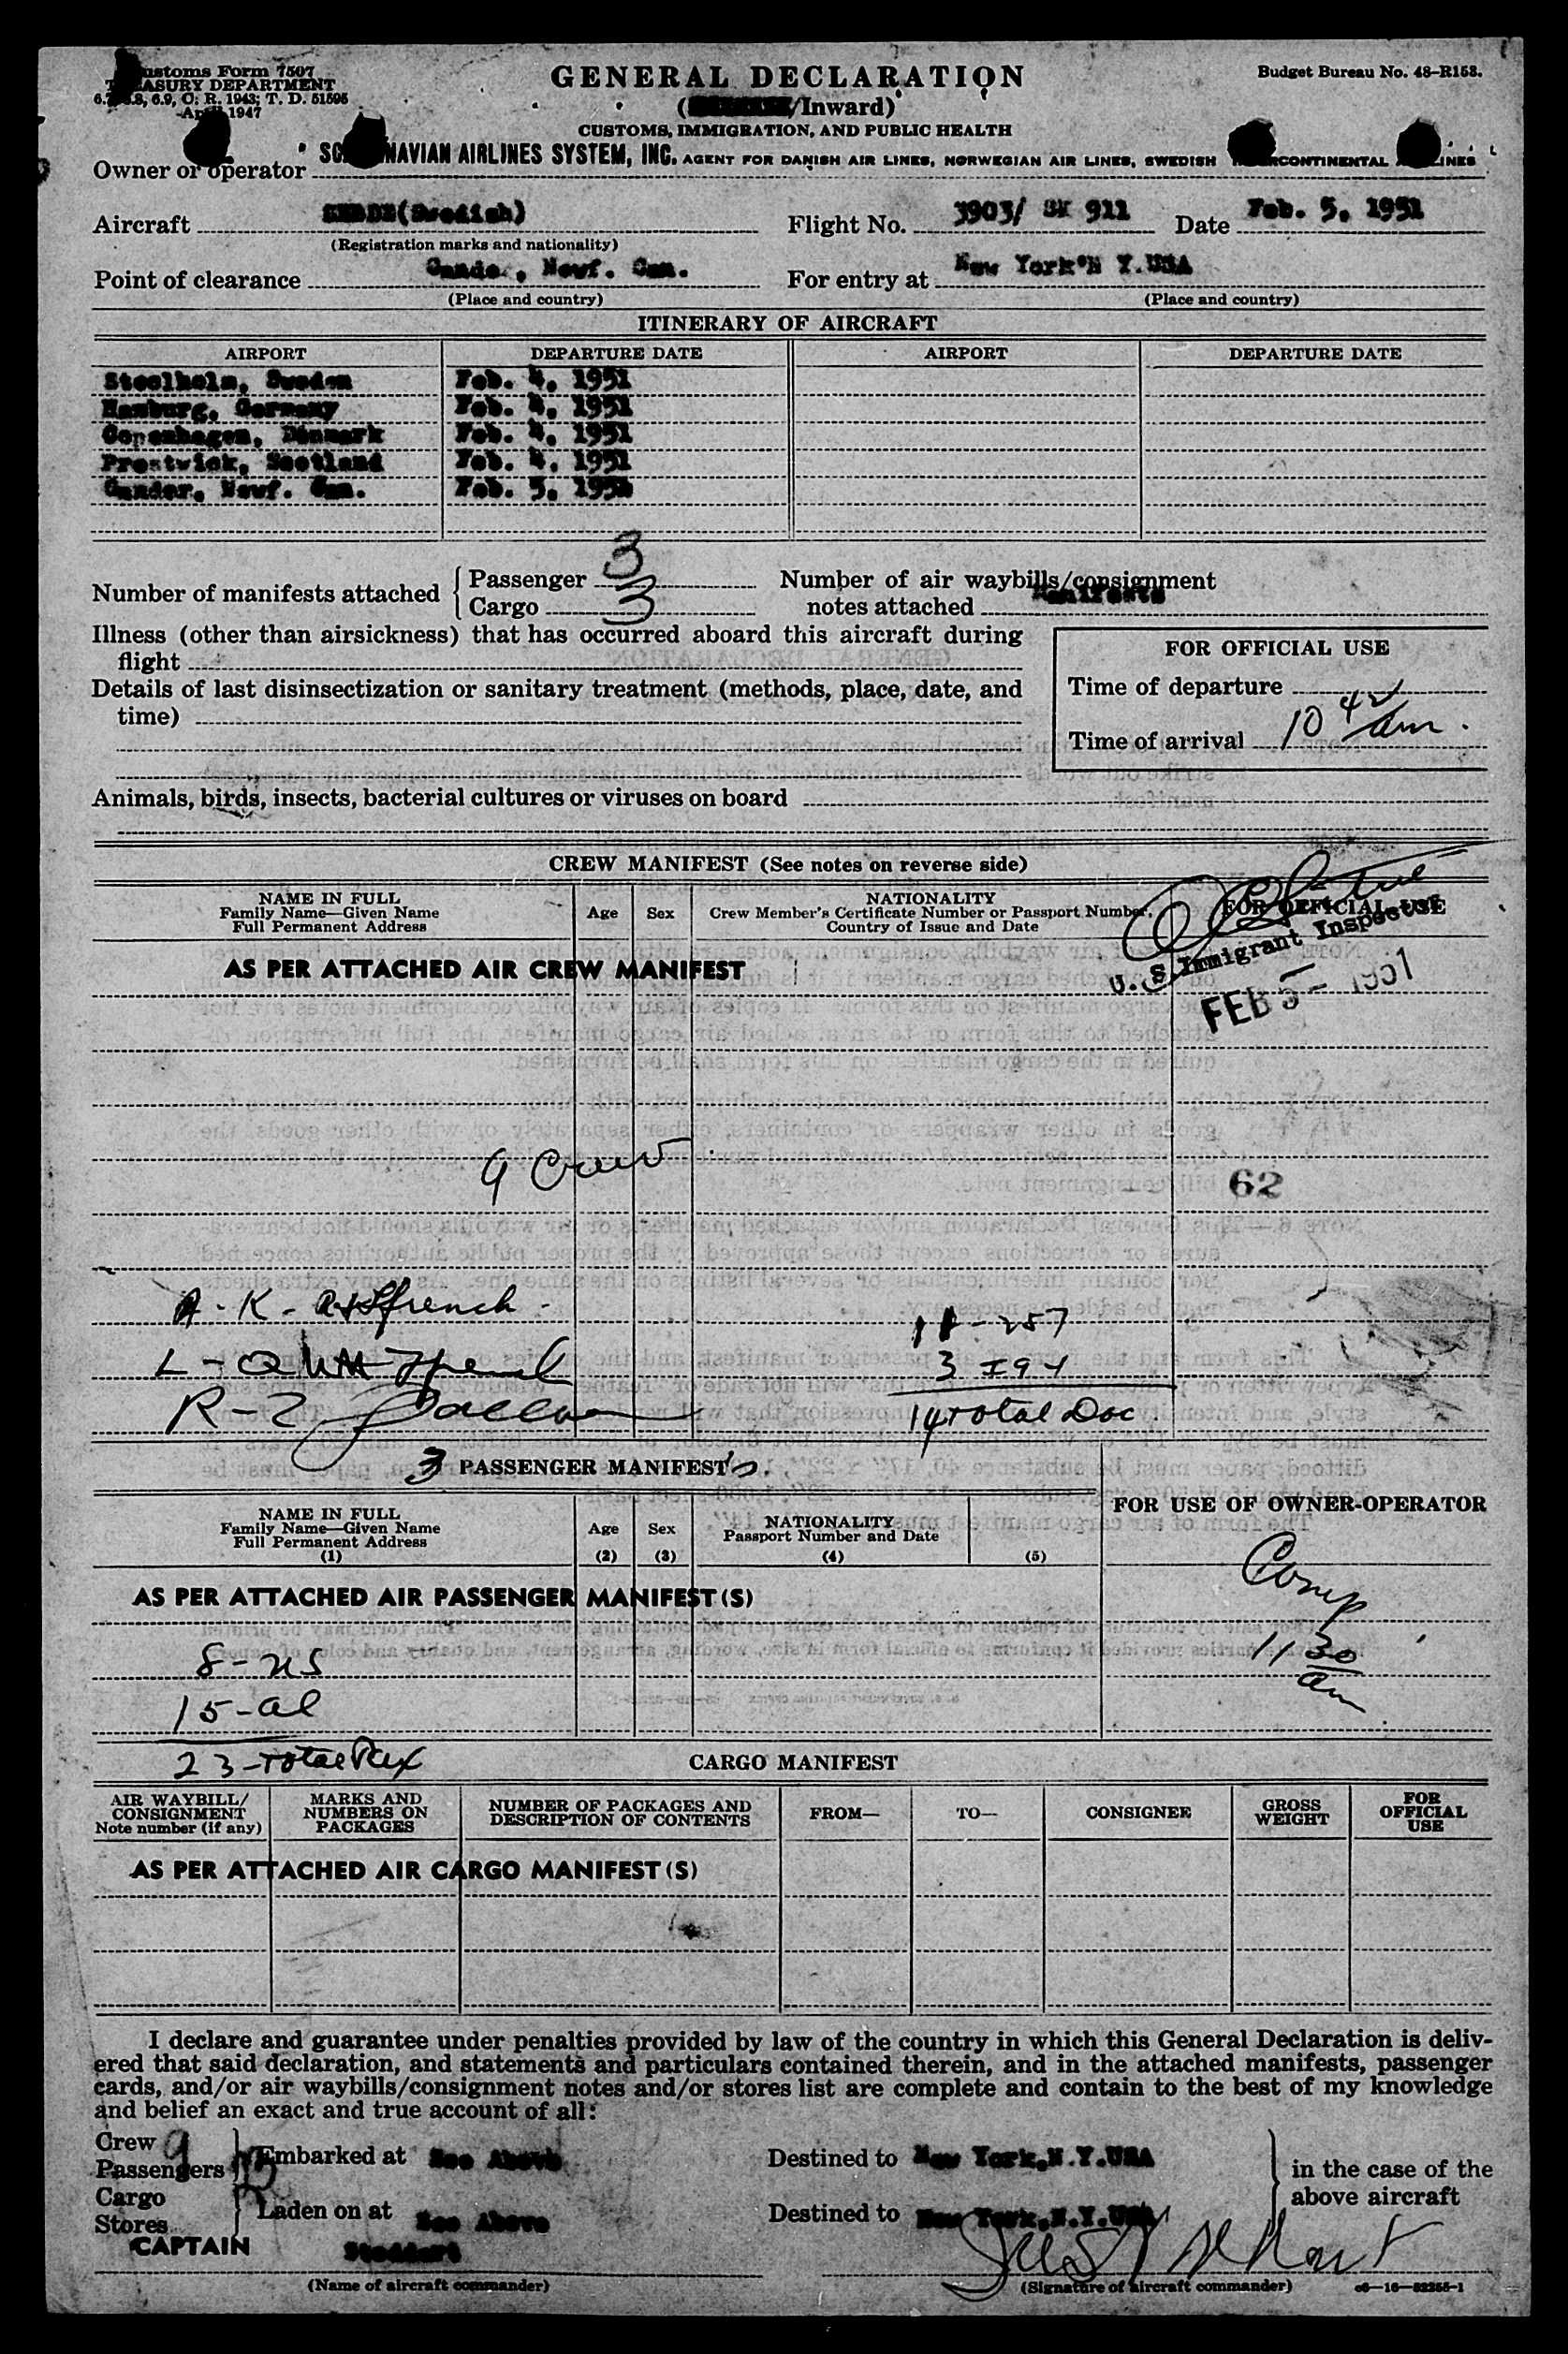 Customs Form 7507
TREASURY DEPARTMENT
6.8, 6.9, C. R. 1943; T. D. 51595
April 1947
GENERAL DECLARATION
Budget Bureau No. 48-R153.
(/Inward)
CUSTOMS, IMMIGRATION, AND PUBLIC HEALTH
Owner or operator SCANDINAVIAN AIRLINES SYSTEM, INC. AGENT FOR DANISH AIR LINES, NORWEGIAN AIR LINES, SWEDISH INTERCONTINENTAL AIRLINES
Aircraft (Swedish) Flight No. 3903/ SK 911 Date Feb. 5, 1951
(Registration marks and nationality)
Point of clearance Gander, Newf. Can. For entry at New York N Y.USA
(Place and country) (Place and country)
ITINERARY OF AIRCRAFT
AIRPORT DEPARTURE DATE AIRPORT DEPARTURE DATE
Stockholm, Sweden Feb. 4, 1951
Hamburg, Germany Feb. 4, 1951
Copenhagen, Denmark Feb. 4, 1951
Prestwick, Scotland Feb. 4, 1951
Gander, Newf. Can. Feb. 5, 1951
Number of manifests attached Passenger 3 Number of air waybills/consignment
Cargo 3 notes attached Manifests
Illness (other than airsickness) that has occurred aboard this aircraft during
flight
FOR OFFICIAL USE
Details of last disinsectization or sanitary treatment (methods, place, date, and
time)
Time of departure
Time of arrival 10 42 am.
Animals, birds, insects, bacterial cultures or viruses on board
CREW MANIFEST (See notes on reverse side)
NAME IN FULL
Family Name—Given Name
Full Permanent Address
Age Sex
NATIONALITY
Crew Member's Certificate Number or Passport Number,
Country of Issue and Date
FOR OFFICIAL USE
U. S. Immigrant Inspector
AS PER ATTACHED AIR CREW MANIFEST
FEB 5 - 1951
9 Crew
62
A - K -
11 - 257
L - Q
3 I94
R - Z
14 Total Doc
3 PASSENGER MANIFEST's.
NAME IN FULL
Family Name—Given Name
Full Permanent Address
(1)
Age
(2)
Sex
(3)
NATIONALITY
Passport Number and Date
(4) (5)
FOR USE OF OWNER-OPERATOR
Comp
11 30
am
AS PER ATTACHED AIR PASSENGER MANIFEST (S)
8 - us
15 - al
23 - Total Pax
CARGO MANIFEST
AIR WAYBILL/
CONSIGNMENT
Note number (if any)
MARKS AND
NUMBERS ON
PACKAGES
NUMBER OF PACKAGES AND
DESCRIPTION OF CONTENTS
FROM— TO— CONSIGNEE
GROSS
WEIGHT
FOR
OFFICIAL
USE
AS PER ATTACHED AIR CARGO MANIFEST (S)
I declare and guarantee under penalties provided by law of the country in which this General Declaration is deliv-
ered that said declaration, and statements and particulars contained therein, and in the attached manifests, passenger
cards, and/or air waybills/consignment notes and/or stores list are complete and contain to the best of my knowledge
and belief an exact and true account of all:
Crew 9
Passengers 23
Embarked at See Above Destined to New York,N.Y.USA
in the case of the
above aircraft
Cargo
Stores
Laden on at See Above Destined to New York,N.Y.USA
CAPTAIN Stoddart
(Name of aircraft commander) (Signature of aircraft commander) c6—16—52255-1